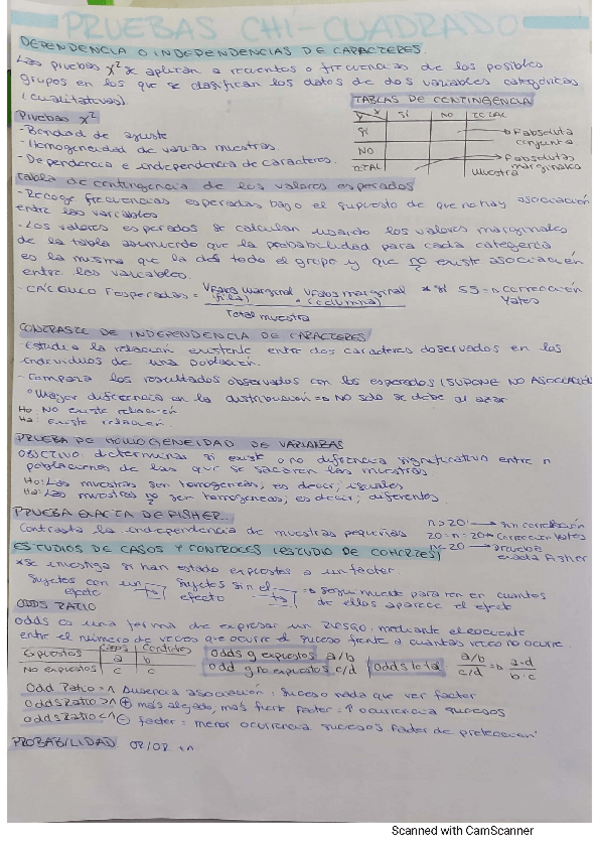 PRUEBAS CHI-CUADRADO
DEPENDENCIA O INDEPENDENCIAS DE CARACTERES
Las pruebas χ² se aplican a recuentos o frecuencias de los posibles
grupos en los que se clasifican los datos de dos variables categóricas
(cualitativas)
TABLAS DE CONTINGENCIA
Pruebas χ²
- Bondad de ajuste
- Homogeneidad de varias muestras.
- Dependencia e independencia de caracteres.
SÍ NO TOTAL
SÍ
NO
TOTAL
F absoluta conjunta
F absolutas marginales
muestra
Tabla de contingencia de los valores esperados
- Recoge frecuencias esperadas bajo el supuesto de que no hay asociación
entre las variables
- Los valores esperados se calculan usando los valores marginales
de la tabla asumiendo que la probabilidad para cada categoría
es la misma que la de todo el grupo y que no existe asociación
entre las variables.
- CÁLCULO F esperadas = marginal (fila) · marginal (columna)
Total muestra
corrección Yates
CONTRASTE DE INDEPENDENCIA DE CARACTERES
Estudia la relación existente entre dos caracteres observados en los
individuos de una población.
- Compara los resultados observados con los esperados (SUPONE NO ASOCIACIÓN
Mayor diferencia en la distribución => NO solo se debe al azar
Ho: NO existe relación
Ha: Existe relación.
PRUEBA DE HOMOGENEIDAD DE VARIANZAS
OBJETIVO: determinar si existe o no diferencia significativa entre n
poblaciones de las que se sacaron las muestras
Ho: Las muestras son homogéneas, es decir, iguales
Ha: Las muestras no son homogéneas, es decir, diferentes.
PRUEBA EXACTA DE FISHER.
Contrasta la independencia de muestras pequeñas
n > 20 → sin corrección
Corrección Yates
n < 20 → prueba exacta Fisher
ESTUDIOS DE CASOS Y CONTROLES (ESTUDIO DE COHORTES)
* Se investiga si han estado expuestos a un factor.
Sujetos con un efecto
Sujetos sin el efecto
en cuantos
de ellos aparece el efecto
ODDS RATIO
Odds es una forma de expresar un riesgo mediante el cociente
entre el número de veces que ocurre el suceso frente a cuantas veces no ocurre.
casos controles
Expuestos a b
No expuestos c c
Odds g expuestos a/b
Odd g no expuestos c/d
Odds total
a/b
c/d
a·d
b·c
Odd Ratio = 1 Ausencia asociación: suceso nada que ver factor
Odds Ratio > 1 ⊕ más alejado, más fuerte Factor = ↑ ocurrencia sucesos
Odds Ratio < 1 ⊖ factor = menor ocurrencia sucesos Factor de protección
PROBABILIDAD OR/OR +1
Scanned with CamScanner